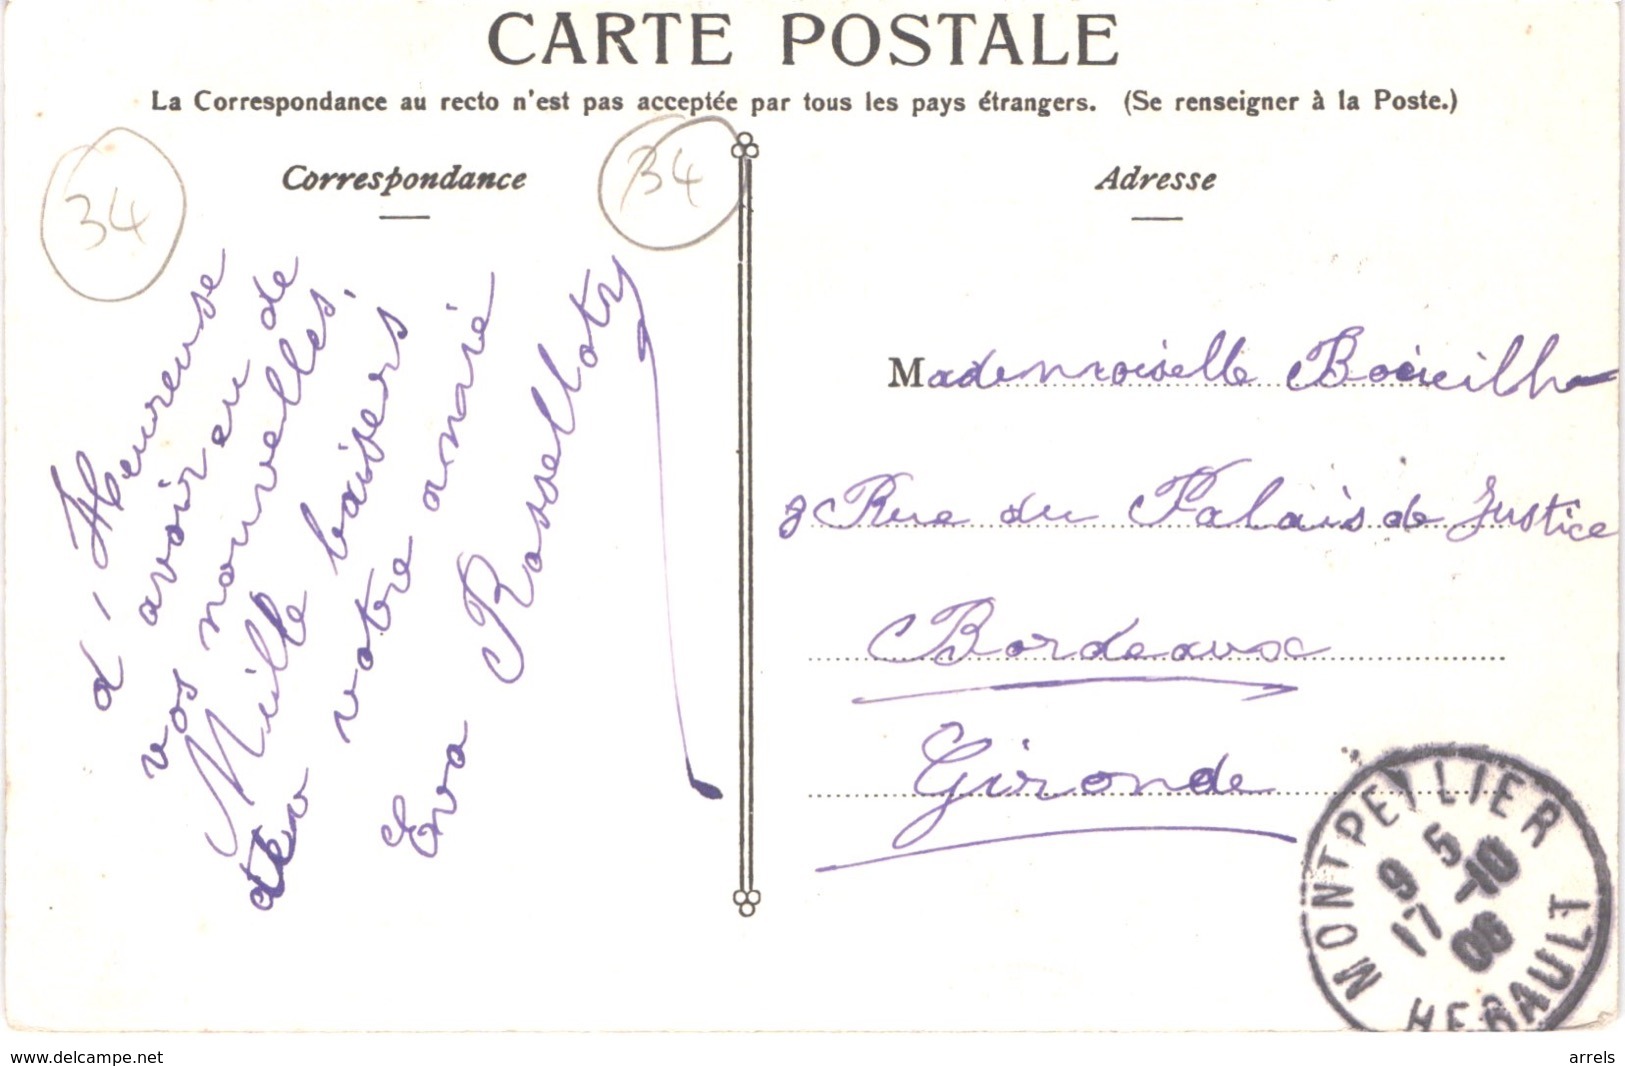 CARTE POSTALE
La Correspondance au recto n'est pas acceptée par tous les pays étrangers. (Se renseigner à la Poste.)
34
34
Correspondance
Heureuse
d'avoir eu de
vos nouvelles.
Mille baisers
de votre amie
Eva Rossellotty
Adresse
Mademoiselle
Rue du Palais de Justice
Bordeaux
Gironde
MONTPELLIER
9 5
17 -10
06
HERAULT
www.delcampe.net
arrels